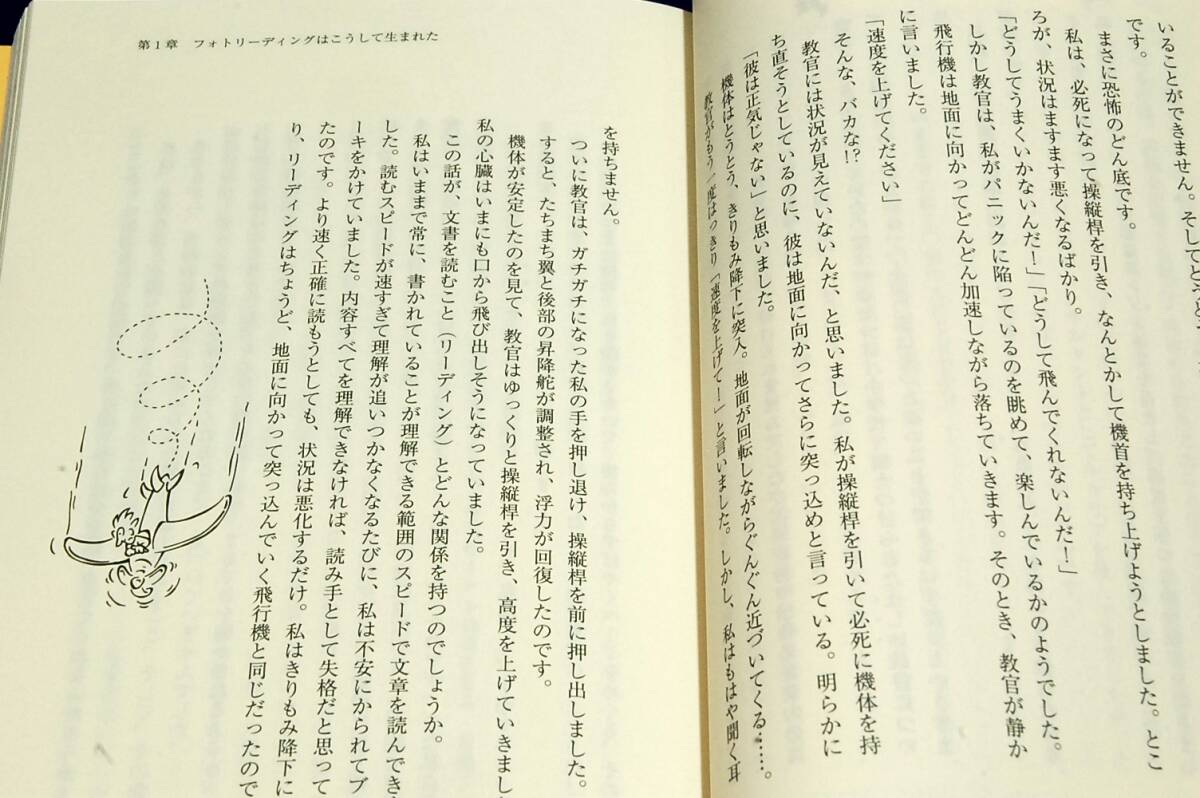 いることができません。そして
です。
まさに恐怖のどん底です。
私は、必死になって操縦桿を引き、なんとかして機首を持ち上げようとしました。とこ
ろが、状況はますます悪くなるばかり。
「どうしてうまくいかないんだ！」「どうして飛んでくれないんだ！」
しかし教官は、私がパニックに陥っているのを眺めて、楽しんでいるかのようでした。
飛行機は地面に向かってどんどん加速しながら落ちていきます。そのとき、教官が静か
に言いました。
「速度を上げてください」
そんな、バカな!?
教官には状況が見えていないんだ、と思いました。私が操縦桿を引いて必死に機体を持
ち直そうとしているのに、彼は地面に向かってさらに突っ込めと言っている。明らかに
「彼は正気じゃない」と思いました。
機体はとうとう、きりもみ降下に突入。地面が回転しながらぐんぐん近づいてくる……。
教官がもう一度はっきり「速度を上げて！」と言いました。しかし、私はもはや聞く耳
第1章 フォトリーディングはこうして生まれた
を持ちません。
ついに教官は、ガチガチになった私の手を押し退け、操縦桿を前に押し出しました。
すると、たちまち翼と後部の昇降舵が調整され、浮力が回復したのです。
機体が安定したのを見て、教官はゆっくりと操縦桿を引き、高度を上げていきまし
私の心臓はいまにも口から飛び出しそうになっていました。
この話が、文書を読むこと（リーディング）とどんな関係を持つのでしょうか。
私はいままで常に、書かれていることが理解できる範囲のスピードで文章を読んでき
した。読むスピードが速すぎて理解が追いつかなくなるたびに、私は不安にかられてブ
ーキをかけていました。内容すべてを理解できなければ、読み手として失格だと思って
たのです。より速く正確に読もうとしても、状況は悪化するだけ。私はきりもみ降下に
り、リーディングはちょうど、地面に向かって突っ込んでいく飛行機と同じだったので